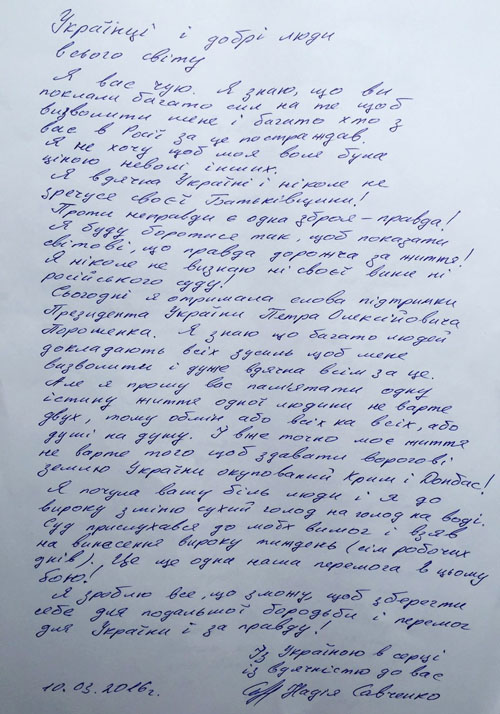 Українці і добрі люди
всього світу
Я вас чую. Я знаю, що ви
поклали багато сил на те щоб
визволити мене і багато хто з
вас в Росії за це постраждав.
Я не хочу щоб моя воля була
ціною неволі інших.
Я вдячна Україні і ніколе не
зречуся своєї Батьківщини!
Проти неправди є одна зброя – правда!
Я буду боротися так, щоб показати
світові, що правда дорожча за життя!
Я ніколе не визнаю ні своєї вине ні
російського суду!
Сьогодні я отримала слова підтримки
Президента України Петра Олексійовича
Порошенка. Я знаю що багато людей
докладають всіх зусиль щоб мене
визволити і дуже вдячна всім за це.
Але я прошу вас пам'ятати одну
істину життя одної людини не варте
двух, тому обмін або всіх на всіх, або
душі на душу. І вже точно моє життя
не варте того щоб здавати ворогові
землю України окупований Крим і Донбас!
Я почула вашу біль люди і я до
вироку зміню сухий голод на голод на воді.
Суд прислухався до моїх вимог і взяв
на винесення вироку тиждень (сім робочих
днів). Це ще одна наша перемога в цьому
бою!
Я зроблю все, що зможу, щоб зберегти
себе для подальшої бородьби і перемог
для України і за правду!
Із Україною в серці
із вдячністю до вас
10.03.2016г. Надія Савченко